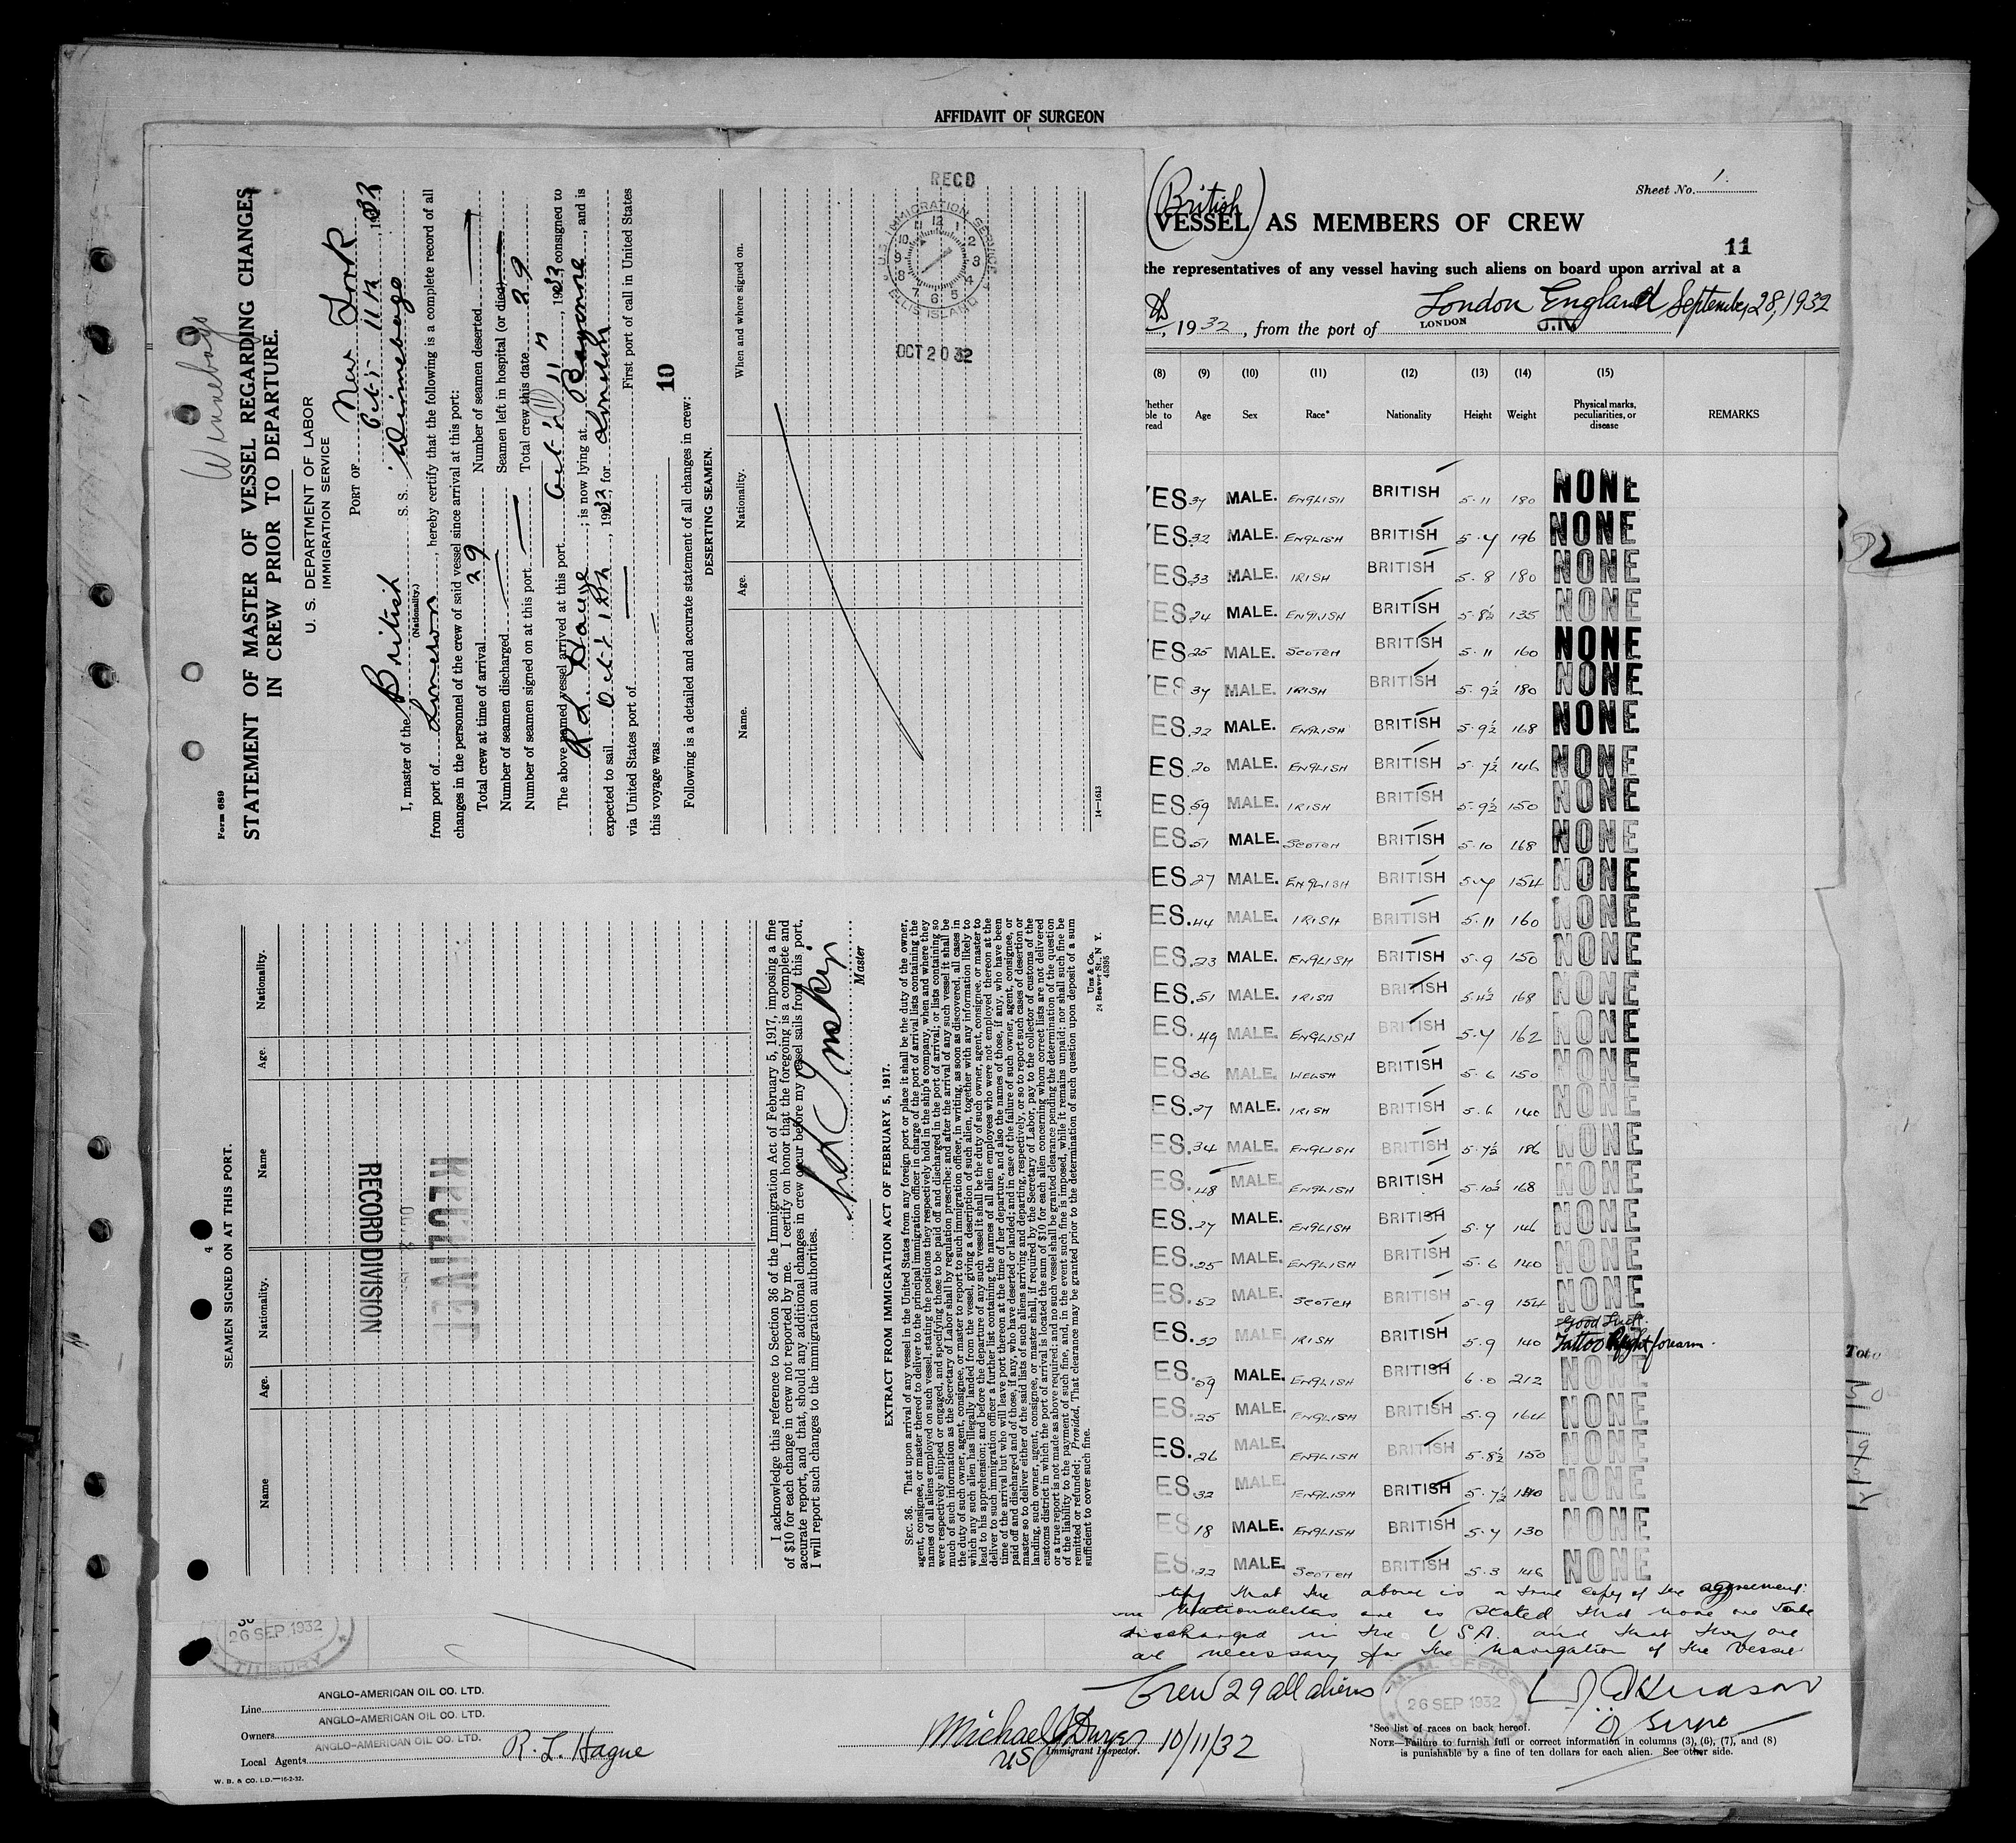 AFFIDAVIT OF SURGEON
Winnebago
Form 689
STATEMENT OF MASTER OF VESSEL REGARDING CHANGES
IN CREW PRIOR TO DEPARTURE.
U. S. DEPARTMENT OF LABOR
IMMIGRATION SERVICE
PORT OF New York
Oct 11th, 1932
I, master of the British S. S. Winnebago
(Nationality.)
from port of London, hereby certify that the following is a complete record of all
changes in the personnel of the crew of said vessel since arrival at this port:
Total crew at time of arrival 29 Number of seamen deserted
Number of seamen discharged Seamen left in hospital (or died)
Number of seamen signed on at this port Total crew this date 29
The above named vessel arrived at this port Oct 11, 1932 consigned to
R L Hague; is now lying at Bayonne, and is
expected to sail Oct 12th, 1932, for London
via United States port of First port of call in United States
this voyage was
10
Following is a detailed and accurate statement of all changes in crew:
DESERTING SEAMEN.
Name. Age. Nationality. When and where signed on.
RECD
U.S. IMMIGRATION SERVICE
ELLIS ISLAND
OCT 20 32
14—1613
4
SEAMEN SIGNED ON AT THIS PORT.
Name Age. Nationality. Name Age. Nationality.
RECEIVED
RECORD DIVISION
I acknowledge this reference to Section 36 of the Immigration Act of February 5, 1917, imposing a fine
of $10 for each change in crew not reported by me. I certify on honor that the foregoing is a complete and
accurate report, and that, should any additional changes in crew occur before my vessel sails from this port,
I will report such changes to the immigration authorities.
Master
EXTRACT FROM IMMIGRATION ACT OF FEBRUARY 5, 1917.
SEC. 36. That upon arrival of any vessel in the United States from any foreign port or place it shall be the duty of the owner,
agent, consignee, or master thereof to deliver to the principal immigration officer in charge of the port of arrival lists containing the
names of all aliens employed on such vessel, stating the positions they respectively hold in the ship's company, when and where they
were respectively shipped or engaged, and specifying those to be paid off and discharged in the port of arrival; or lists containing so
much of such information as the Secretary of Labor shall by regulation prescribe; and after the arrival of any such vessel it shall be
the duty of such owner, agent, consignee, or master to report to such immigration officer, in writing, as soon as discovered, all cases in
which any such alien has illegally landed from the vessel, giving a description of such alien, together with any information likely to
lead to his apprehension; and before the departure of any such vessel it shall be the duty of such owner, agent, consignee, or master to
deliver to such immigration officer a further list containing the names of all alien employees who were not employed thereon at the
time of the arrival but who will leave port thereon at the time of her departure, and also the names of those, if any, who have been
paid off and discharged and of those, if any, who have deserted or landed; and in case of the failure of such owner, agent, consignee, or
master so to deliver either of the said lists of such aliens arriving and departing, respectively, or so to report such cases of desertion or
landing, such owner, agent, consignee, or master shall, if required by the Secretary of Labor, pay to the collector of customs of the
customs district in which the port of arrival is located the sum of $10 for each alien concerning whom correct lists are not delivered
or a true report is not made as above required; and no such vessel shall be granted clearance pending the determination of the question
of the liability to the payment of such fine, and, in the event such fine is imposed, while it remains unpaid; nor shall such fine be
remitted or refunded; Provided, That clearance may be granted prior to the determination of such question upon deposit of a sum
sufficient to cover such fine.
Uns & Co.
24 Beaver St., N Y.
45395
Sheet No. 1.
(British)
VESSEL AS MEMBERS OF CREW
11
the representatives of any vessel having such aliens on board upon arrival at a
, 1932, from the port of London England September 28, 1932
LONDON
(8) (9) (10) (11) (12) (13) (14) (15)
hether ble to read Age Sex Race* Nationality Height Weight Physical marks, peculiarities, or disease REMARKS
YES 37 MALE. ENGLISH BRITISH 5.11 180 NONE
YES 32 MALE. ENGLISH BRITISH 5.7 196 NONE
YES 33 MALE. IRISH BRITISH 5.8 180 NONE
YES 24 MALE. ENGLISH BRITISH 5.8½ 135 NONE
YES 25 MALE. SCOTCH BRITISH 5.11 160 NONE
YES 37 MALE. IRISH BRITISH 5.9½ 180 NONE
YES 22 MALE. ENGLISH BRITISH 5.9½ 168 NONE
ES. 20 MALE. ENGLISH BRITISH 5.7½ 146 NONE
ES. 59 MALE. IRISH BRITISH 5.9½ 150 NONE
ES. 51 MALE. SCOTCH BRITISH 5.10 168 NONE
ES. 27 MALE. ENGLISH BRITISH 5.7 154 NONE
ES. 44 MALE. IRISH BRITISH 5.11 160 NONE
ES. 23 MALE. ENGLISH BRITISH 5.9 150 NONE
ES. 51 MALE. IRISH BRITISH 5.4½ 168 NONE
ES. 49 MALE. ENGLISH BRITISH 5.7 162 NONE
ES. 36 MALE. WELSH BRITISH 5.6 150 NONE
ES. 27 MALE. IRISH BRITISH 5.6 140 NONE
ES. 34 MALE. ENGLISH BRITISH 5.7½ 186 NONE
ES. 48 MALE. ENGLISH BRITISH 5.10½ 168 NONE
ES. 27 MALE. ENGLISH BRITISH 5.7 146 NONE
ES. 25 MALE. ENGLISH BRITISH 5.6 140 NONE
ES. 52 MALE. SCOTCH BRITISH 5.9 154 NONE
ES. 32 MALE. IRISH BRITISH 5.9 140 Good Luck. Tattoo Right forearm.
ES. 59 MALE. ENGLISH BRITISH 6.0 212 NONE
ES. 25 MALE. ENGLISH BRITISH 5.9 164 NONE
ES. 26 MALE. ENGLISH BRITISH 5.8½ 150 NONE
ES. 32 MALE. ENGLISH BRITISH 5.7½ 140 NONE
ES 18 MALE. ENGLISH BRITISH 5.7 130 NONE
ES. 22 MALE. SCOTCH BRITISH 5.3 146 NONE
that the above is a true copy of the agreement:
Nationalities are as stated that none are to be
discharged in the U.S.A. and that they are
all necessary for the navigation of the Vessel
Crew 29 all aliens.
26 SEP 1932
TILBURY
M. M. OFFICE
26 SEP 1932
Line ANGLO-AMERICAN OIL CO. LTD.
Owners ANGLO-AMERICAN OIL CO. LTD.
Local Agents ANGLO-AMERICAN OIL CO. LTD. R. L. Hague
W. B. & CO. LD.—16-2-32.
Michael J Dwyer 10/11/32
US Immigrant Inspector.
*See list of races on back hereof.
NOTE—Failure to furnish full or correct information in columns (3), (6), (7), and (8)
is punishable by a fine of ten dollars for each alien. See other side.